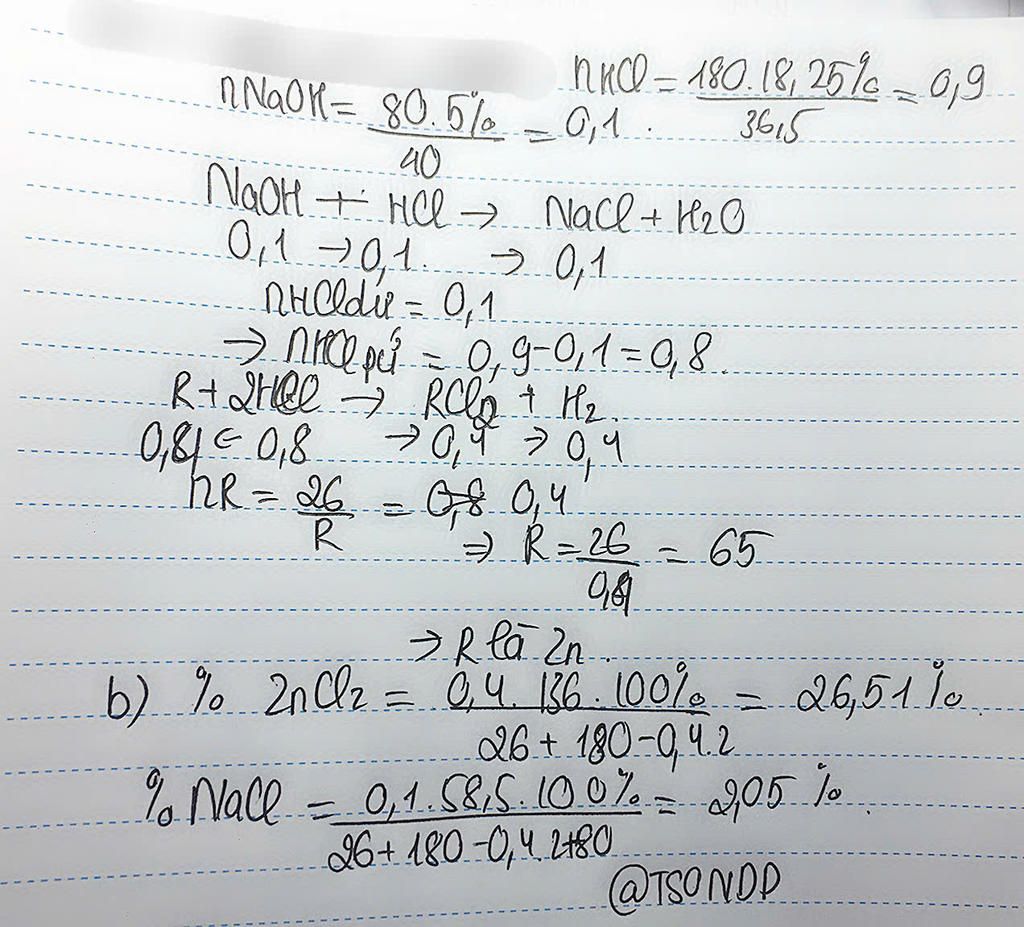 nNaOH = 80.5% / 40 = 0,1. nHCl = 180.18,25% / 36,5 = 0,9
NaOH + HCl → NaCl + H2O
0,1 → 0,1. → 0,1
nHCl dư = 0,1
→ nHCl pứ = 0,9-0,1 = 0,8.
R + 2HCl → RCl2 + H2.
0,4 ← 0,8 → 0,4 → 0,4
nR = 26 / R = 0,4
⇒ R = 26 / 0,4 = 65
→ R là Zn.
b) % ZnCl2 = 0,4.136.100% / 26+180-0,4.2 = 26,51%.
% NaCl = 0,1.58,5.100% / 26+180-0,4.2+80 = 2,05%.
@TSONDD